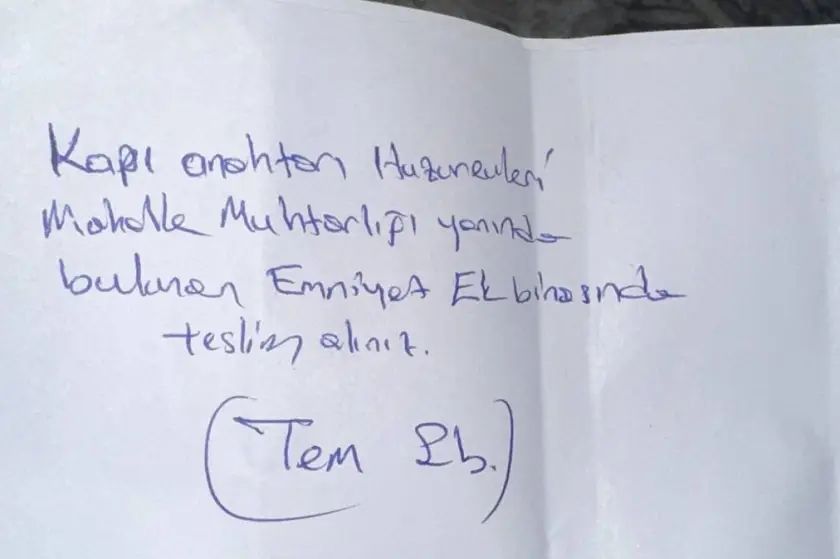 Kapı anahtarı Huzurevleri
Mahalle Muhtarlığı yanında
bulunan Emniyet Ek binasında
teslim alınız.
(Tem Şb.)